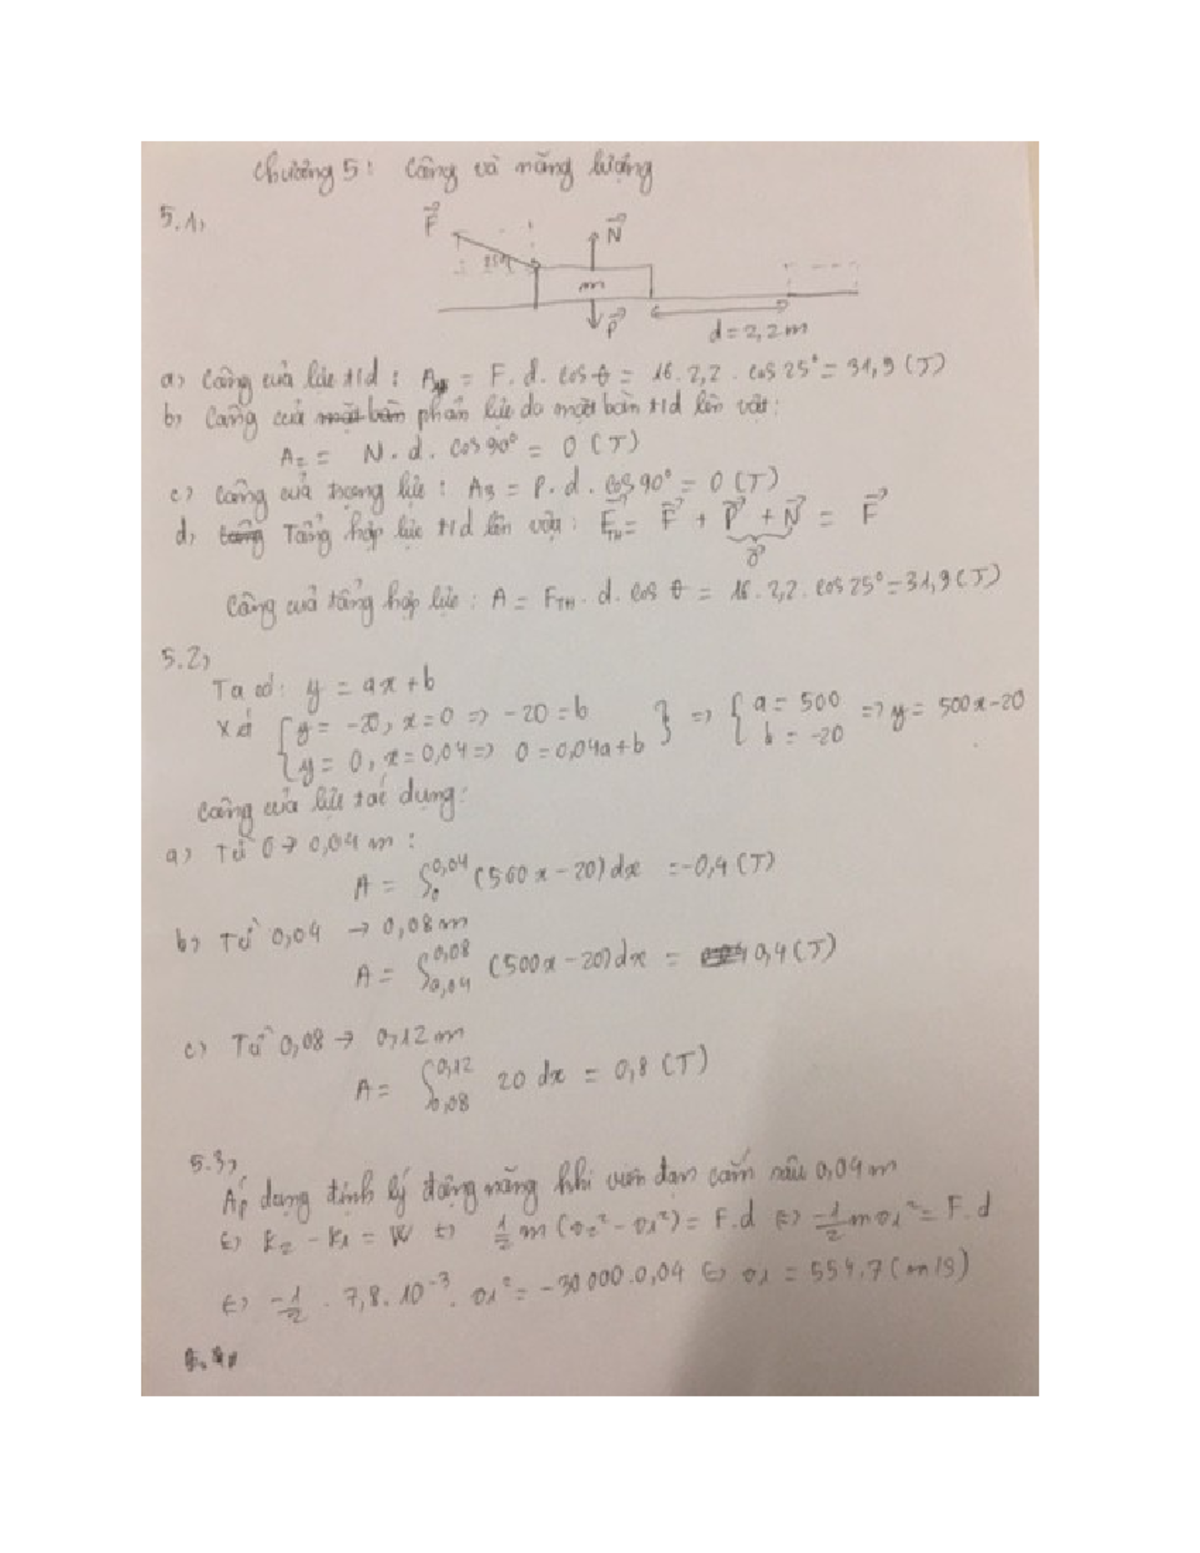 Chương 5: Công và năng lượng
5.1,
F⃗ N⃗
25°
m
P⃗
d = 2,2 m
a, Công của lực t/d : A = F. d. cos θ = 16. 2,2 . cos 25° = 31,9 (J)
b, Công của mặt bàn phản lực do mặt bàn t/d lên vật:
A₂ = N. d. cos 90° = 0 (J)
c, Công của trọng lực : A₃ = P. d. cos 90° = 0 (J)
d, tổng Tổng hợp lực t/d lên vật : F⃗TH = F⃗ + P⃗ + N⃗ = F⃗
0⃗
Công của tổng hợp lực : A = FTH. d. cos θ = 16. 2,2. cos 25° = 31,9 (J)
5.2,
Ta có: y = ax + b
Xét { y = -20, x = 0 => -20 = b } => { a = 500 => y = 500x - 20
y = 0, x = 0,04 => 0 = 0,04a + b b = -20
Công của lực tác dụng:
a, Từ 0 → 0,04 m :
A = ∫₀^0,04 (500x - 20) dx = -0,4 (J)
b, Từ 0,04 → 0,08 m
A = ∫0,04^0,08 (500x - 20) dx = 0,4 (J)
c, Từ 0,08 → 0,12 m
A = ∫0,08^0,12 20 dx = 0,8 (J)
5.3,
Áp dụng định lý động năng khi viên đạn cắm sâu 0,04 m
⇔ K₂ - K₁ = W ⇔ 1/2 m (v₂² - v₁²) = F.d ⇔ -1/2 m v₁² = F.d
⇔ -1/2 . 7,8. 10⁻³. v₁² = -30 000. 0,04 ⇔ v₁ = 554,7 (m/s)